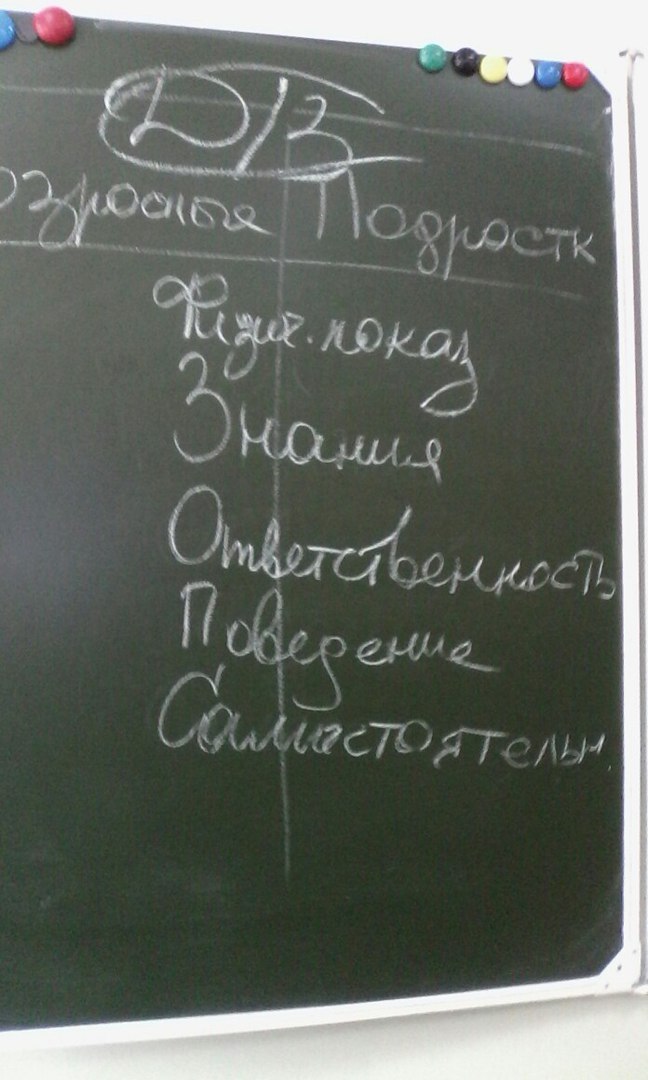 Д/З
озрослые Подростк
Физич. показ
Знания
Ответственность
Поведение
Самостоятельн.